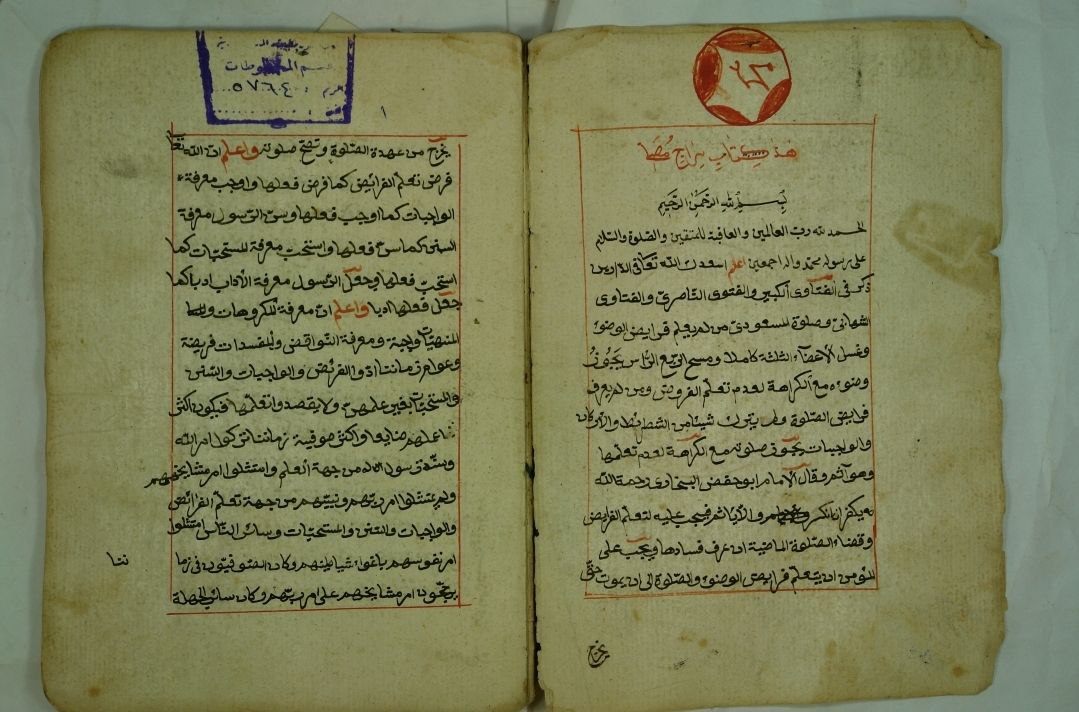 هذا كتاب سراج مصطا
بسم الله الرحمن الرحيم
الحمد لله رب العالمين والعاقبة للمتقين والصلوة والسلام
على رسوله محمد واله اجمعين اعلم اسعدك الله تعالى في الدارين
ذكر في الفتاوى الكبير والفتوى الناصري والفتاوى
وصلوة المسعودي من لم يعلم فرايض الوضوء
وغسل الأعضاء الثلثة كاملا ومسح الربع الراس يجوز
وضوءه مع الكراهة لعدم تعلم الفروض ومن لم يعرف
فرايض الصلوة ولم يترك شيئا من الشرائط والأركان
والواجبات يجوز صلوته مع الكراهة لعدم تعلمها
وهو آثم وقال الإمام ابو حفص البخارى رحمة الله
يكفر ان انكر والا ياثم فيجب عليه لتعلم الفرايض
وقضاء الصلوة الماضية ان عرف فسادها ويجب على
المؤمن ان يتعلم فرايض الوضوء والصلوة الى ان يموت حتى
يخرج
٥٧٦٠٤
١
يخرج من عهدة الصلوة وتصح صلوته واعلم ان الله تعا
فرض تعلم الفرائض كما فرض فعلها واوجب معرفة
الواجبات كما اوجب فعلها وسن الرسول معرفة
السنن كما سن فعلها واستحب معرفة المستحبات كما
استحب فعلها وجعل الرسول معرفة الآداب ادبا كما
جعل فعلها ادبا واعلم ان معرفة المكروهات
المنهيات واجبة ومعرفة النواقض والمفسدات فريضة
وعوام زماننا ادوا الفرائض والواجبات والسنن
والمستحبات بغير علمهن ولا يقصدوا تعلمها فيكون اكثر
علمهم ضايعا واكثر صوفية زماننا تركوا امر الله
وسنة رسول الله من جهة العلم وامتثلوا امر مشايخهم
ولم يمتثلوا امر ربهم ونبيهم من جهة تعلم الفرائض
والواجبات والسنن والمستحبات وسائر الناس امتثلوا
امر نفوسهم باغواء شياطينهم وكان الصوفيون في زما
ننا
يرجحون امر مشايخهم على امر ربهم وكان سائر الجهلة